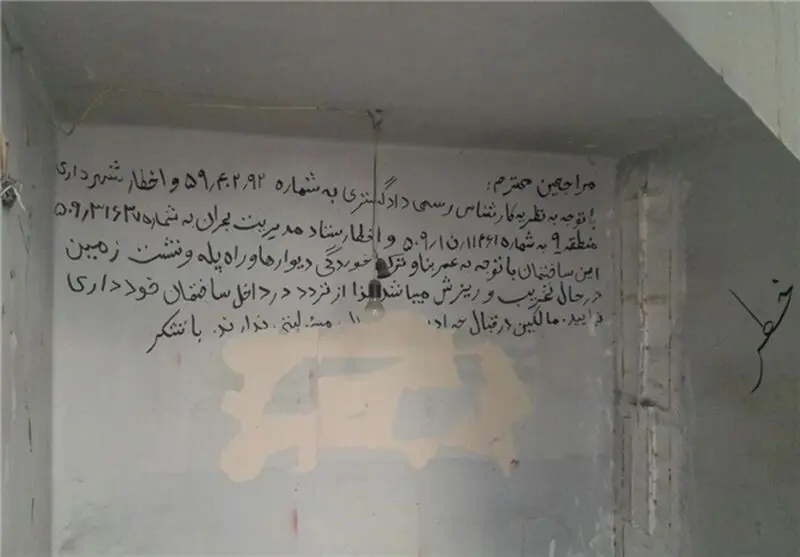 مراجعین محترم:
با توجه به نظریه کارشناس رسمی دادگستری به شماره ۵۹٫۴۰۲٫۹۲ و اخطار شهرداری
منطقه ۹ به شماره ۵۰۹٫۱۵٫۱۱۴۶۱ و اخطار ستاد مدیریت بحران به شماره
این ساختمان با توجه به عمر بنا و ترک خوردگی دیوارها و راه پله و نشست زمین
در حال تخریب و ریزش میباشد لذا از تردد در داخل ساختمان خودداری
نمایید. مالکین در قبال ندارند. با تشکر
خطر